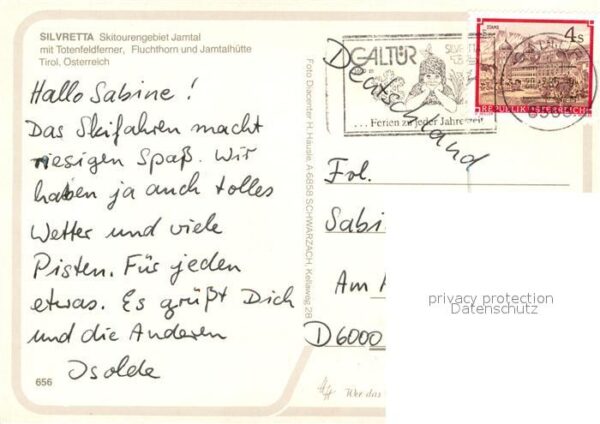 SILVRETTA Skitourengebiet Jamtal
mit Totenfeldferner, Fluchthorn und Jamtalhütte
Tirol, Österreich
Hallo Sabine!
Das Skifahren macht
riesigen Spaß. Wir
haben ja auch tolles
Wetter und viele
Pisten. Für jeden
etwas. Es grüßt Dich
und die Anderen
Isolde
656
Foto Diacenter H. Häusle, A-6858 SCHWARZACH, Kellaweg 28
GALTÜR
SILVRETTA
... Ferien zu jeder Jahreszeit
STAMS
4 S
REPUBLIK ÖSTERREICH
Deutschland
Frl.
Sabi
Am
D6000
Wer das
privacy protection
Datenschutz